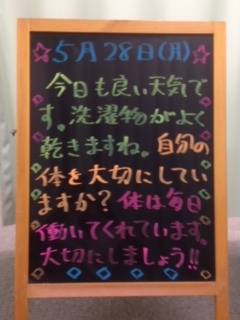 ☆5月28日(月)☆
今日も良い天気で
す。洗濯物がよく
乾きますね。自分の
体を大切にしてい
ますか?体は毎日
働いてくれています。
大切にしましょう!!